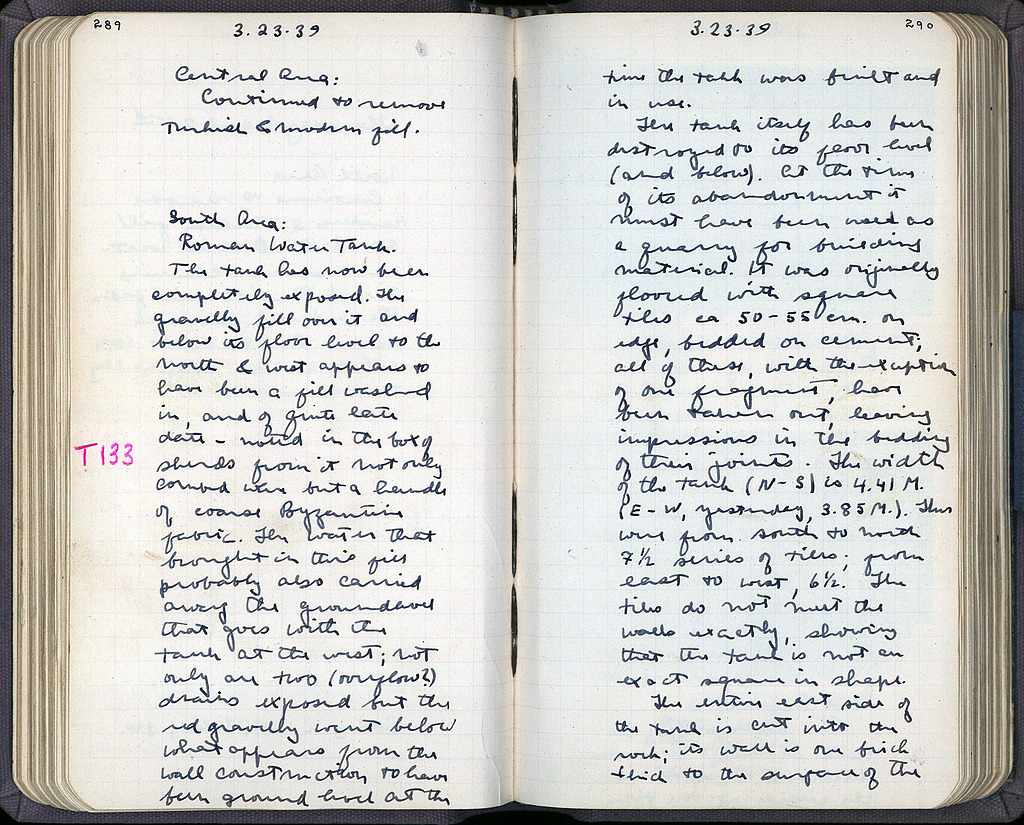 289
3.23.39
Central Area:
Continued to remove
Turkish & modern fill.
South Area:
Roman Water Tank.
The tank has now been
completely exposed. The
gravelly fill over it and
below its floor level to the
north & west appears to
have been a fill washed
in, and of quite late
date – noted in the box of
T133
sherds from it not only
combed ware but a handle
of coarse Byzantine
fabric. The water that
brought in this fill
probably also carried
away the ground level
that goes with the
tank at the west; not
only are two (overflow?)
drains exposed but the
red gravelly went below
what appears from the
wall construction to have
been ground level at the
290
3.23.39
time the tank was built and
in use.
The tank itself has been
destroyed to its floor level
(and below). At the time
of its abandonment it
must have been used as
a quarry for building
material. It was originally
floored with square
tiles ca 50-55 cm. on
edge, bedded on cement;
all of these, with the exception
of one fragment, have
been taken out, leaving
impressions in the bedding
of their joints. The width
of the tank (N-S) is 4.41 M.
(E-W, yesterday, 3.85 M.). There
were from south to north
7½ series of tiles; from
east to west, 6½. The
tiles do not meet the
walls exactly, showing
that the tank is not an
exact square in shape.
The entire east side of
the tank is cut into the
rock; its wall is one brick
thick to the surface of the